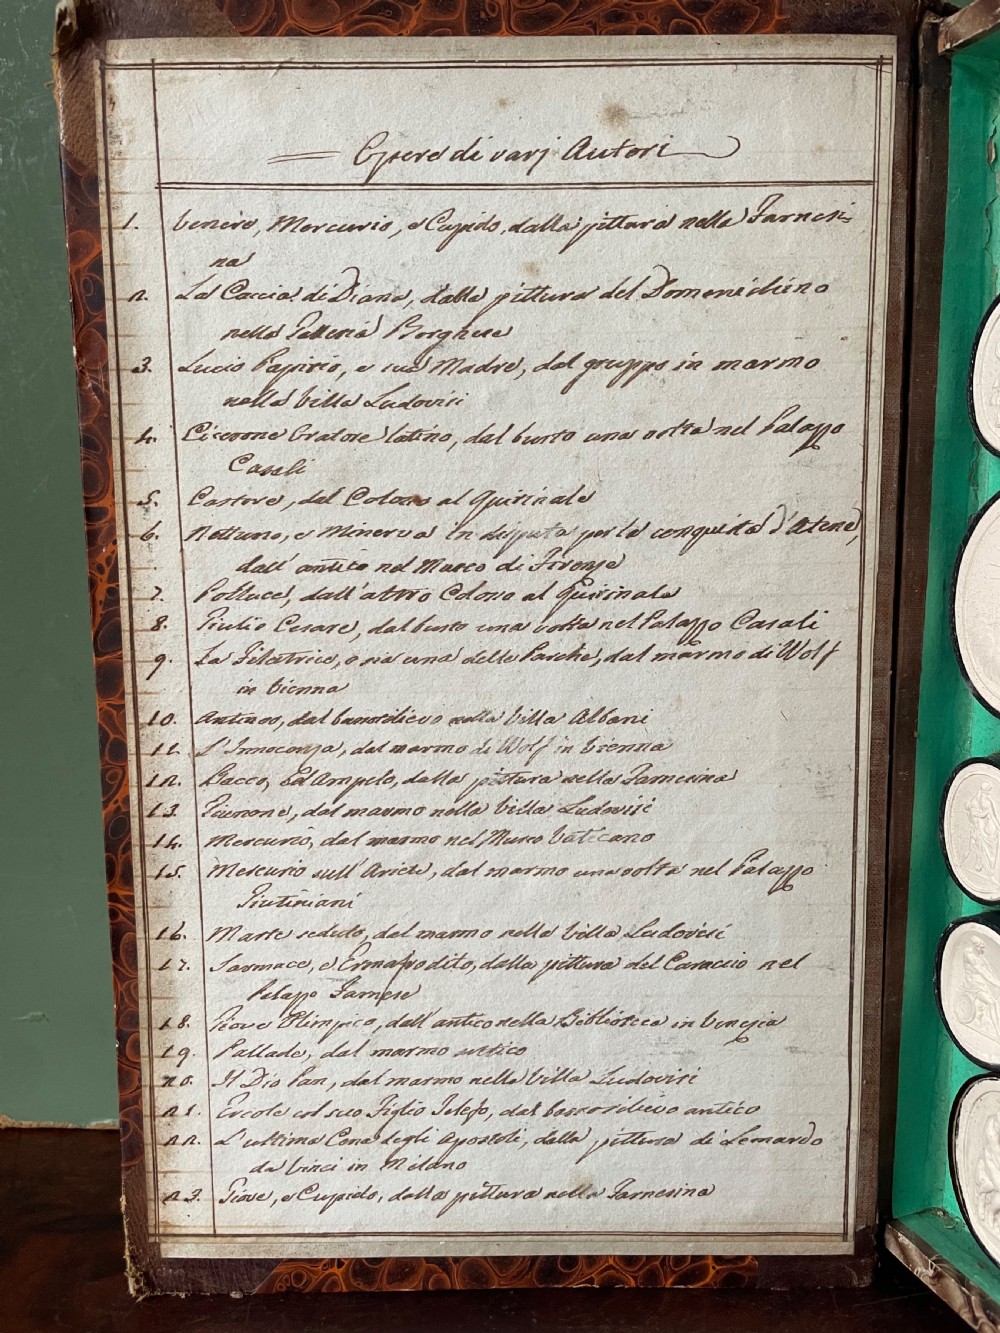 Opere di varj Autori
1. Venere, Mercurio, e Cupido, dalla pittura nella Farnesi-
na
2. La Caccia di Diana, dalla pittura del Domenichino
nella Galleria Borghese
3. Lucio Papirio, e sua Madre, dal gruppo in marmo
nella Villa Ludovisi
4. Cicerone Oratore latino, dal busto una volta nel Palazzo
Casali
5. Castore, dal Colosso al Quirinale
6. Nettuno, e Minerva in disputa per la conquista d'Atene,
dall'antico nel Museo di Firenze
7. Polluce, dall'altro Colosso al Quirinale
8. Giulio Cesare, dal busto una volta nel Palazzo Casali
9. La Filatrice, o sia una delle Parche, dal marmo di Wolf
in Vienna
10. Antinoo, dal bassorilievo nella Villa Albani
11. L'Innocenza, dal marmo di Wolf in Vienna
12. Bacco, ed Ampelo, dalla pittura nella Farnesina
13. Giunone, dal marmo nella Villa Ludovisi
14. Mercurio, dal marmo nel Museo Vaticano
15. Mercurio sull'Ariete, dal marmo una volta nel Palazzo
Giustiniani
16. Marte seduto, dal marmo nella Villa Ludovisi
17. Sarmace, e Ermafrodito, dalla pittura del Caraccio nel
Palazzo Farnese
18. Giove Olimpico, dall'antico nella Biblioteca in Venezia
19. Pallade, dal marmo antico
20. Il Dio Pan, dal marmo nella Villa Ludovisi
21. Ercole col suo Figlio Telefo, dal bassorilievo antico
22. L'ultima Cena degli Apostoli, dalla pittura di Leonardo
da Vinci in Milano
23. Giove, e Cupido, dalla pittura nella Farnesina